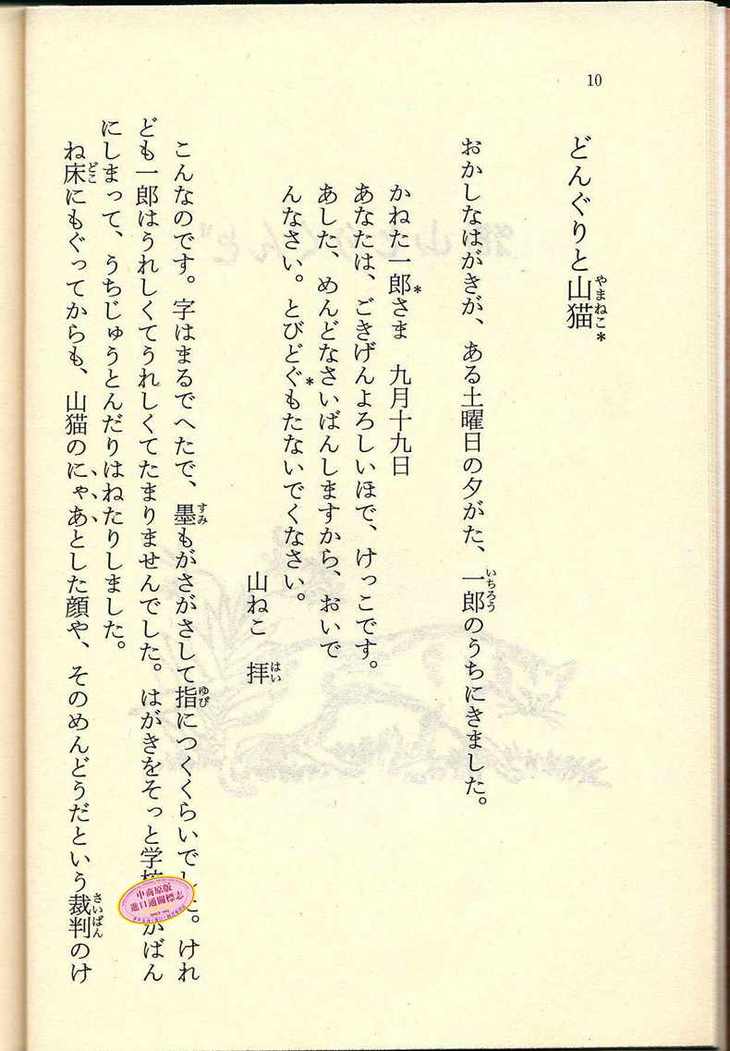 10
どんぐりと山猫*
やまねこ
おかしなはがきが、ある土曜日の夕がた、一郎のうちにきました。
いちろう
かねた一郎さま*　九月十九日
あなたは、ごきげんよろしいほで、けっこです。
あした、めんどなさいばんしますから、おいで
んなさい。とびどぐ*もたないでくなさい。
山ねこ　拝
はい
こんなのです。字はまるでへたで、墨もがさがさして指につくくらいでした。けれ
すみ
ゆび
ども一郎はうれしくてうれしくてたまりませんでした。はがきをそっと学校のかばん
にしまって、うちじゅうとんだりはねたりしました。
ね床にもぐってからも、山猫のにゃあとした顔や、そのめんどうだという裁判のけ
どこ
さいばん
中商原版
進口通關標志